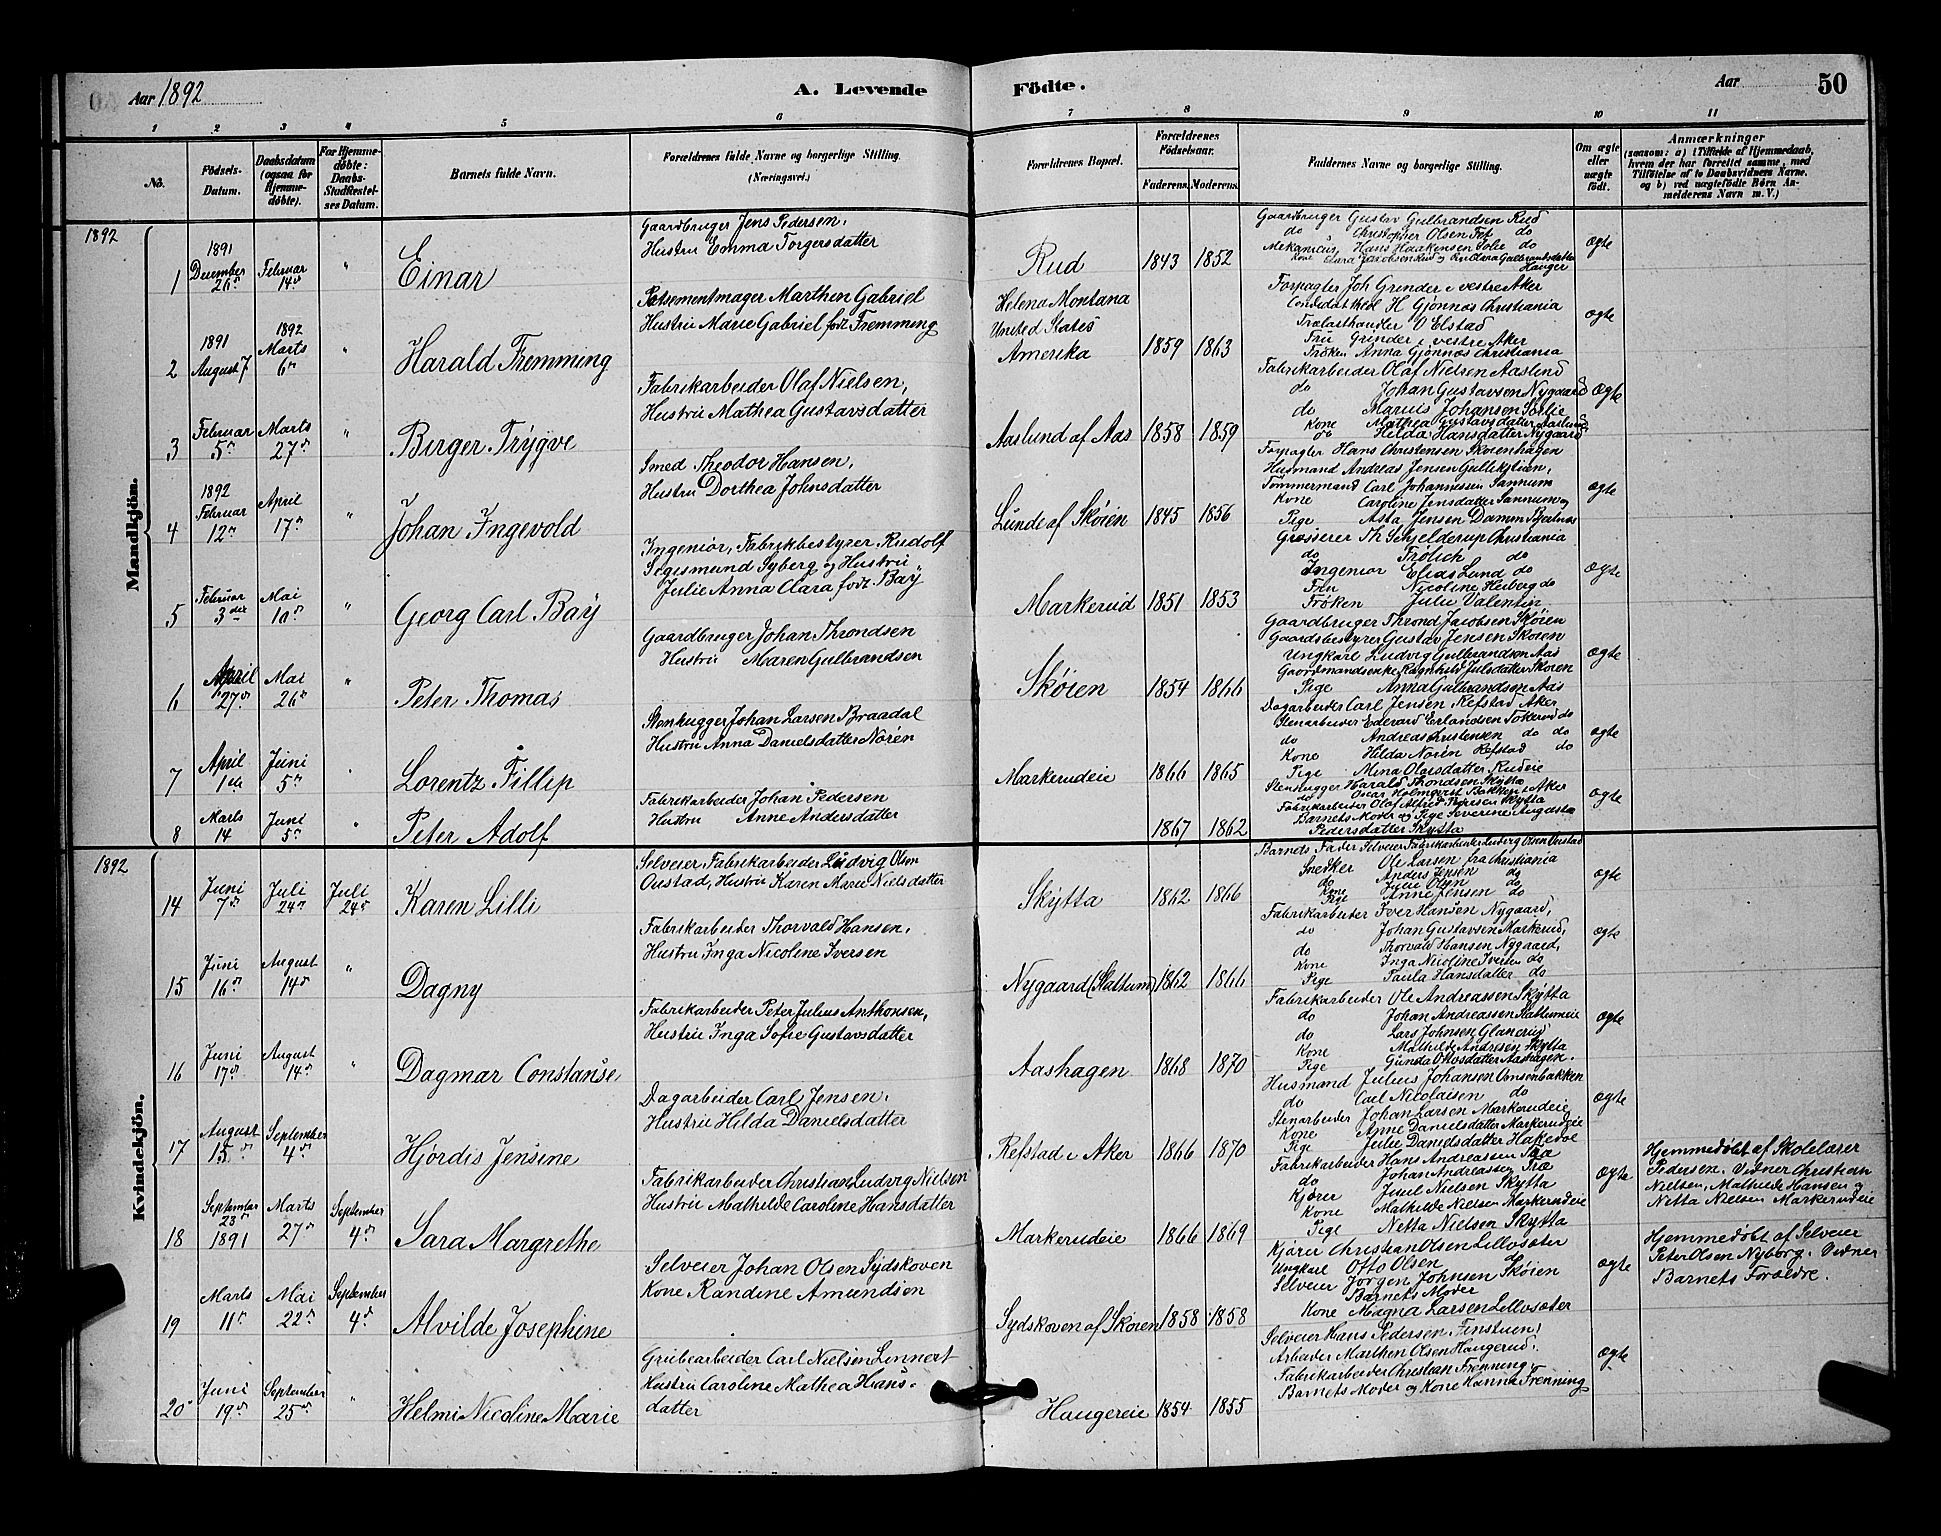 Aar 1892
A. Levende
Födte.
Aar
50
1 2 3 4 5 6 7 8 9 10 11
No.
Födsels-Datum.
Daabsdatum (ogsaa for Hjemme-døbte).
For Hjemme-døbte: Daabs-Stadfæstel-ses Datum.
Barnets fulde Navn.
Forældrenes fulde Navne og borgerlige Stilling. (Næringsvei.)
Forældrenes Bopæl.
Forældrenes Födselsaar.
Faderens. Moderens.
Faddernes Navne og borgerlige Stilling.
Om ægte eller uægte födt.
Anmærkninger
(saasom: a) i Tilfælde af Hjemmedaab, hvem der har forrettet samme, med Tilföielse af to Daabsvidners Navne, og b) ved uægtefödte Børn An-melderens Navn m. V.)
Mandkjön.
1892
1
1891 December 26de
Februar 14de
"
Einar
Gaardbruger Jens Pedersen,
Hustru Emma Torgersdatter
Rud
1843 1852
Gaardbruger Gustav Gulbrandsen Rud
do Christopher Olsen Fet do
Mekanicus Hans Haakensen Solie do
Kone
Hauger
ægte
2
1891 August 7
1892 Marts 6te
"
Harald Fremming
Marthen Gabriel
Hustru Marie Gabriel født Fremming
Helena Montana
United States
Amerika
1859 1863
Forpagter Joh Grinder i vestre Aker
Candidat H Gjønnæs Christiania
Trælasthandler O Elstad
Fru Grinder i vestre Aker
Frøken Anna Gjønnæs Christiania
ægte
3
Februar 5te
Marts 27de
"
Birger Trygve
Fabrikarbeider Olaf Nielsen,
Hustru Mathea Gustavsdatter
Aaslund af Aas
1858 1859
Fabrikarbeider Olaf Nielsen Aaslund
do Johan Gustavsen Nygaard
do Marius Johansen Sørlie
Kone Mathea Gustavsdatter Aaslund
do Hilda Hansdatter Nygaard
Ægte
4
1892 Februar 12te
April 17de
"
Johan Ingevold
Smed Theodor Hansen,
Hustru Dorthea Johnsdatter
Lunde af Skøien
1845 1856
Forpagter Hans Christensen Skøienhagen
Husmand Andreas Jensen
Tømmermand Carl Johannessen Sannum
Kone Caroline Jensdatter Sannum og
Pige Asta Jensen Damm
ægte
5
Februar 3die
Mai 10de
"
Georg Carl Bay
Ingeniør, Fabrikbestyrer Rudolf
Segismund Syberg og Hustru
Julie Anna Clara født Bay
Markerud
1851 1853
Grosserer Th Schjelderup Christiania
do Frølich do
Ingeniør Elias Lund do
Fru Nicoline Heiberg do
Frøken Julie Valentin
ægte
6
April 27de
Mai 26de
"
Peter Thomas
Gaardbruger Johan Throndsen
Hustru Maren Gulbrandsen
Skøien
1854 1866
Gaardbruger Thrond Jacobsen Skøien
Gaardsbestyrer Gustav Jensen Skøien
Ungkarl Ludvig Gulbrandsen Aas
Gaardmandsenke Ragnhild Julsdatter Skøien
Pige Anna Gulbrandsen Aas
ægte
7
April 1ste
Juni 5te
"
Lorentz Fillip
Stenhugger Johan Larsen Braadal
Hustru Anna Danielsdatter Norén
Markerudeie
1866 1865
Dagarbeider Carl Jensen Refstad Aker
Stenarbeider Edevard Erlandsen Tokerud do
do Andreas Christensen do do
Kone Hilda Norén Refstad do
Pige Mina Olausdatter Rudeie
ægte
8
Marts 14
Juni 5te
"
Peter Adolf
Fabrikarbeider Johan Pedersen
Hustru Anne Andersdatter
1867 1862
Stenhugger Harald Thondsen Skytta
do Oscar Holmqvist Bakken i Aker
Fabrikarbeider Olaf Alfred Pedersen Skytta
Barnets Moder og Pige Severine Augusta
Pedersdatter Skytta
ægte
Kvindekjön.
1892
14
Juni 7de
Juli 24de
Juli 24de
Karen Lilli
Selveier, Fabrikarbeider Ludvig Olsen
Oustad, Hustru Karen Marie Nielsdatter
Skytta
1862 1866
Barnets Fader Selveier Fabrikarbeider Ludvig Olsen Oustad
Snedker Ole Larsen fra Christiania
do Anders Jensen do
Kone Julie Olsen do
Pige Anne Jensen do
ægte
15
Juni 16de
August 14de
"
Dagny
Fabrikarbeider Thorvald Hansen,
Hustru Inga Nicoline Iversen
Nygaard (Slattum)
1862 1866
Fabrikarbeider Iver Hansen Nygaard,
do Johan Gustavsen Markerud,
do Thorvald Hansen Nygaard,
Kone Inga Nicoline Iversen do
Pige Paula Hansdatter do
ægte
16
Juni 17de
August 14de
"
Dagmar Constanse
Fabrikarbeider Peter Julius Anthonsen,
Hustru Inga Sofie Gustavsdatter
Aashagen
1868 1870
Fabrikarbeider Ole Andreassen Skytta
do Johan Andreassen Slattumeie
do Lars Johnsen Glanerud
Kone Mathilde Andresen Skytta
Pige Gunda Olavsdatter Aashagen.
ægte
17
August 15de
September 4de
Hjørdis Jensine
Dagarbeider Carl Jensen,
Hustru Hilda Danielsdatter
Refstad i Aker
1866 1870
Husmand Julius Johansen Oensenbakken
do Carl Nicolaisen do
Stenarbeider Johan Larsen Markerudeie
Kone Anne Danielsdatter Markerudeie
Pige Julie Danielsdatter
ægte
18
September 23de 1891
Marts 27de
September 4de
Sara Margrethe
Fabrikarbeider Christian Ludvig Nielsen
Hustru Mathilde Caroline Hansdatter
Markerudeie
1866 1869
Fabrikarbeider Hans Andreassen
do Johan Andreassen
Kjører Juul Nielsen Skytta
Kone Mathilde Nielsen Markerudeie
Pige Netta Nielsen Skytta
ægte
Hjemmedøbt af Skolelærer
Pedersen. Vidner Christian
Nielsen, Mathilde Hansen og
Netta Nielsen Markerudeie
19
Marts 11te
Mai 22de
September 4de
Alvilde Josephine
Selveier Johan Olsen Sydskoven
Kone Randine Amundsen
Sydskoven af Skøien
1858 1858
Kjører Christian Olsen Lillosæter
Ungkarl Otto Olsen do
Selveier Jørgen Johnsen Skøien
Barnets Moder
Kone Magna Larsen Lillosæter
ægte
Hjemmedøbt af Selveier
Peter Olsen Nyborg. Vidner
Barnets Forældre.
20
Juni 19de
September 25de
"
Helmi Nicoline Marie
Grubearbeider Carl Nielsen Linnert
Hustru Caroline Mathea Hans-
datter
Haugereie
1854 1855
Selveier Hans Pedersen Finstuen,
Arbeider Marthen Olsen Haugerud,
Fabrikarbeider Christian Frenning,
Barnets Moder og Kone Hanna Frenning
ægte